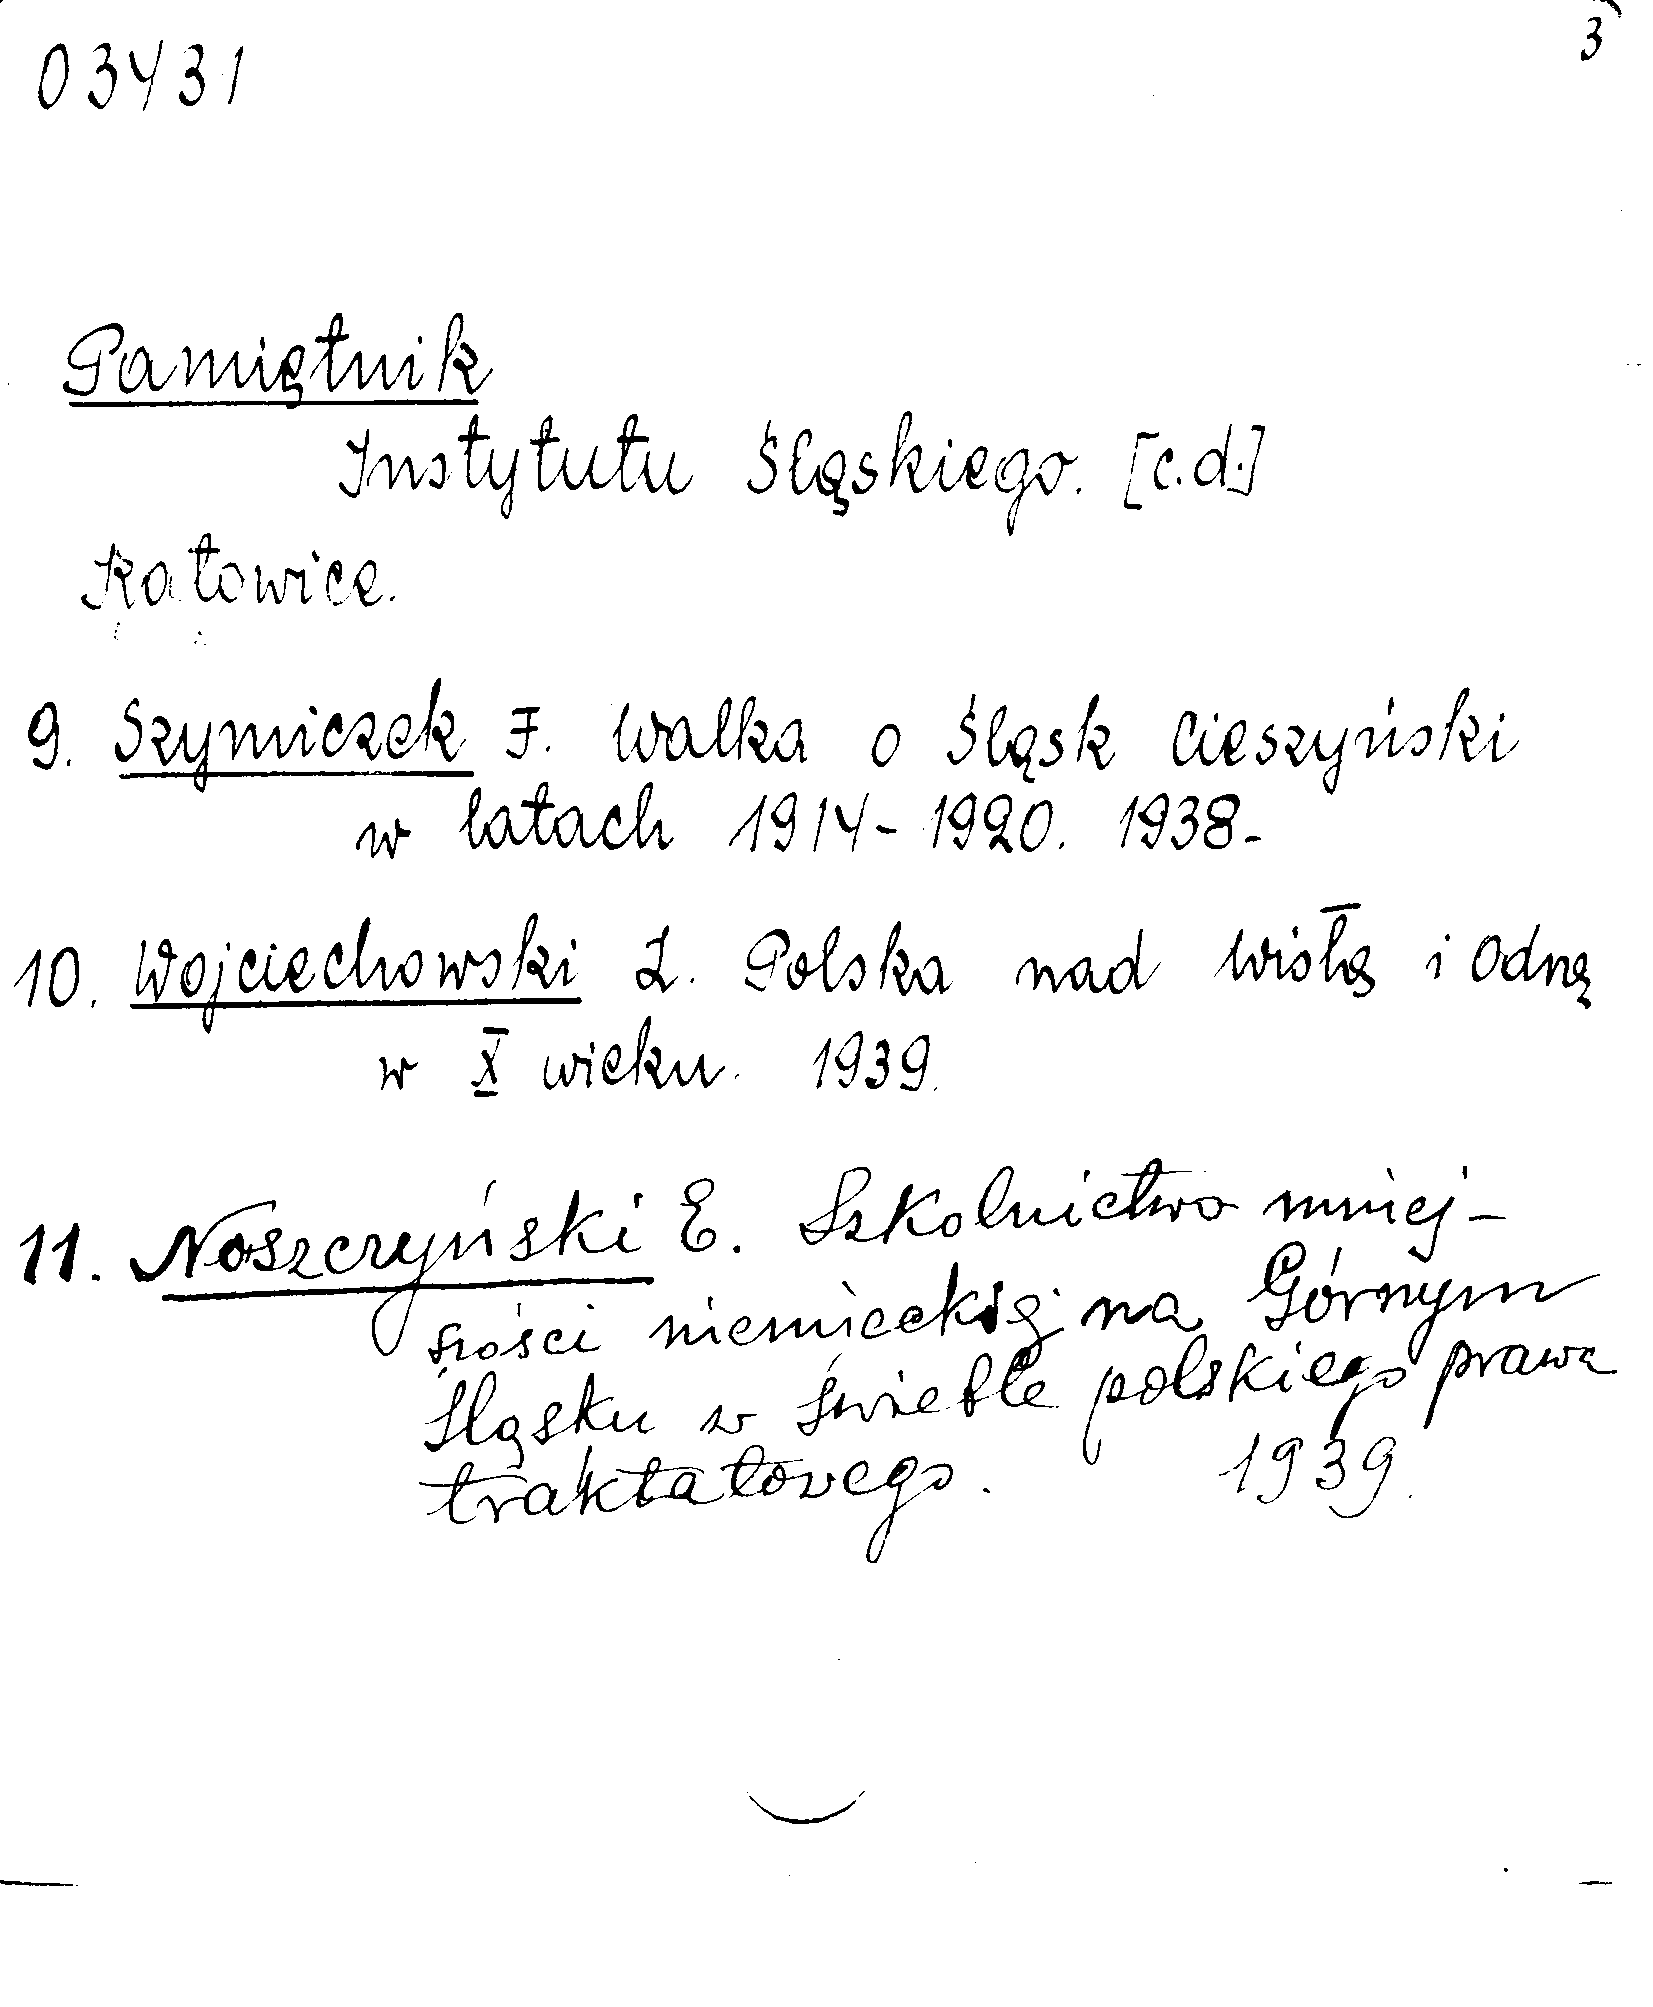 03431
3
Pamiętnik
Instytutu Śląskiego. [c.d.]
Katowice.
9. Szymiczek F. Walka o Śląsk Cieszyński
w latach 1914-1920. 1938-
10. Wojciechowski Z. Polska nad Wisłą i Odrą
w X wieku. 1939.
11. Noszczyński E. Szkolnictwo mniej-
szości niemieckiej na Górnym
Śląsku w świetle polskiego prawa
traktatowego. 1939.